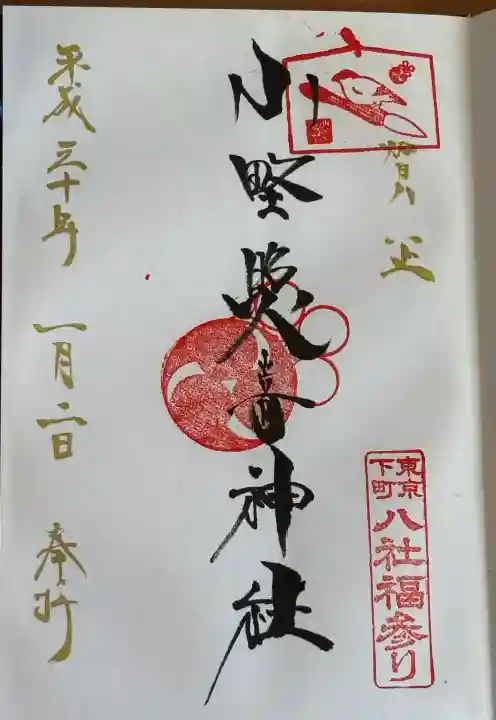 賀正
東京
下町
八社福参り
小野照崎神社
平成三十年 一月二日 奉拝